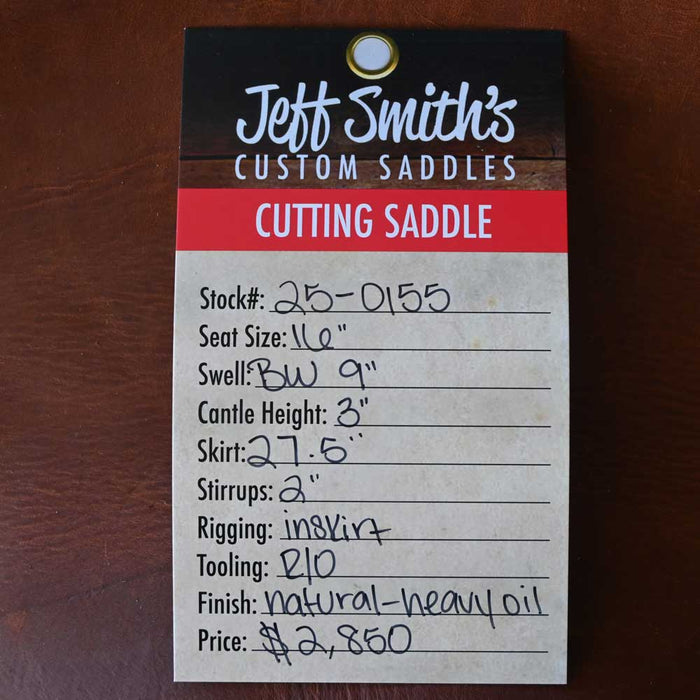 Jeff Smith's
CUSTOM SADDLES
CUTTING SADDLE
Stock#: 25-0155
Seat Size: 16"
Swell: BW 9"
Cantle Height: 3"
Skirt: 27.5"
Stirrups: 2"
Rigging: inskirt
Tooling: R/O
Finish: natural-heavy oil
Price: $2,850